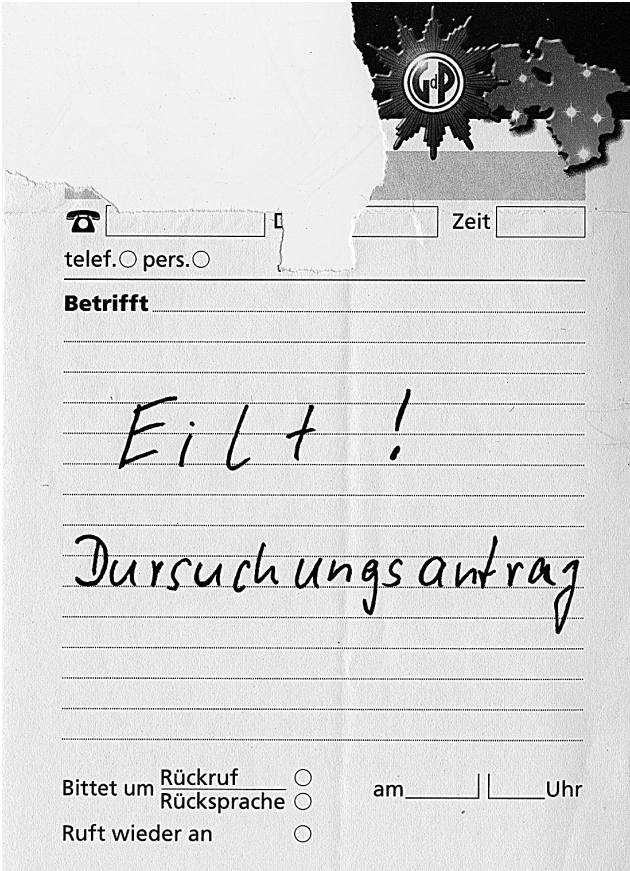 GdP
D
Zeit
telef. pers.
Betrifft
Eilt !
Dursuchungsantrag
Bittet um Rückruf
Rücksprache
am Uhr
Ruft wieder an